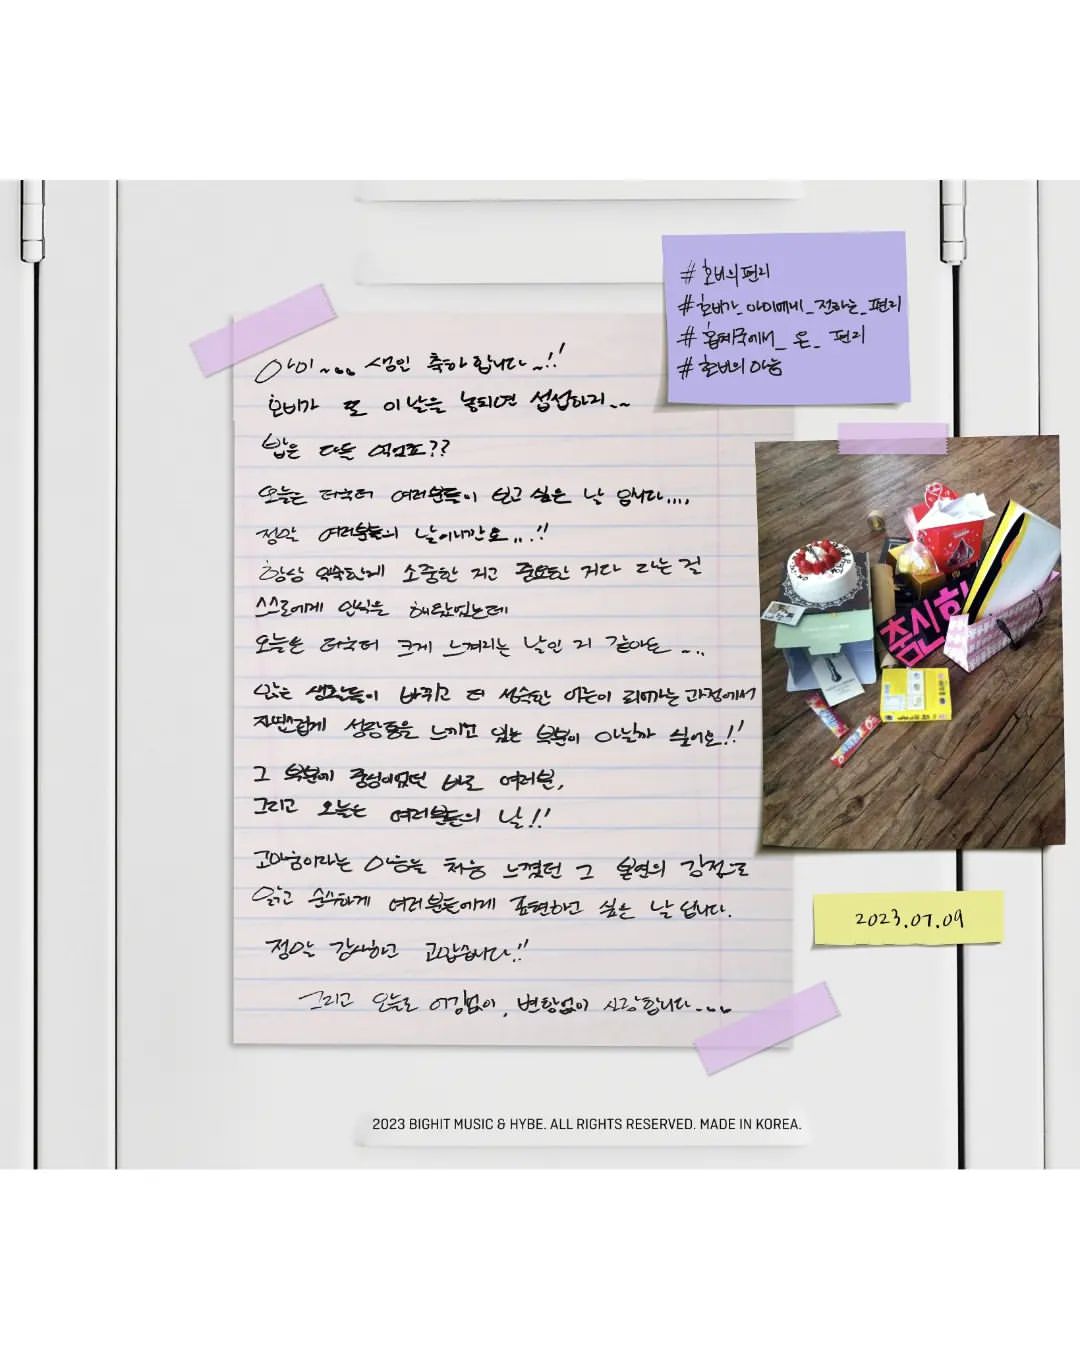 아미~... 생일 축하합니다~!!
호비가 또 이날을 놓치면 섭섭하지..~
밥은 다들 먹었죠??
오늘은 더욱더 여러분들이 보고 싶은 날 입니다....
정말 여러분들의 날이니깐요..!!
항상 익숙한게 소중한 거고 중요한 거다 라는 걸
스스로에게 인식을 해왔었는데
오늘은 더욱더 크게 느껴지는 날인 거 같아요 ~..
있는 생각들이 바뀌고 더 성숙한 어른이 되어가는 과정에서
자연스럽게 성장통을 느끼고 있는 부분이 아닐까 싶어요!!
그 부분에 중심이었던 바로 여러분,
그리고 오늘은 여러분들의 날!!
고마움이라는 마음을 처음 느꼈던 그 본연의 감정으로
맑고 순수하게 여러분들에게 표현하고 싶은 날 입니다.
정말 감사하고 고맙습니다!!
그리고 오늘도 어김없이, 변함없이 사랑합니다~...
#호비의편지
#호비가_아미에게_전하는_편지
#홉케국에서_온_편지
#호비의마음
춤신
2023.07.09
2023 BIGHIT MUSIC & HYBE. ALL RIGHTS RESERVED. MADE IN KOREA.